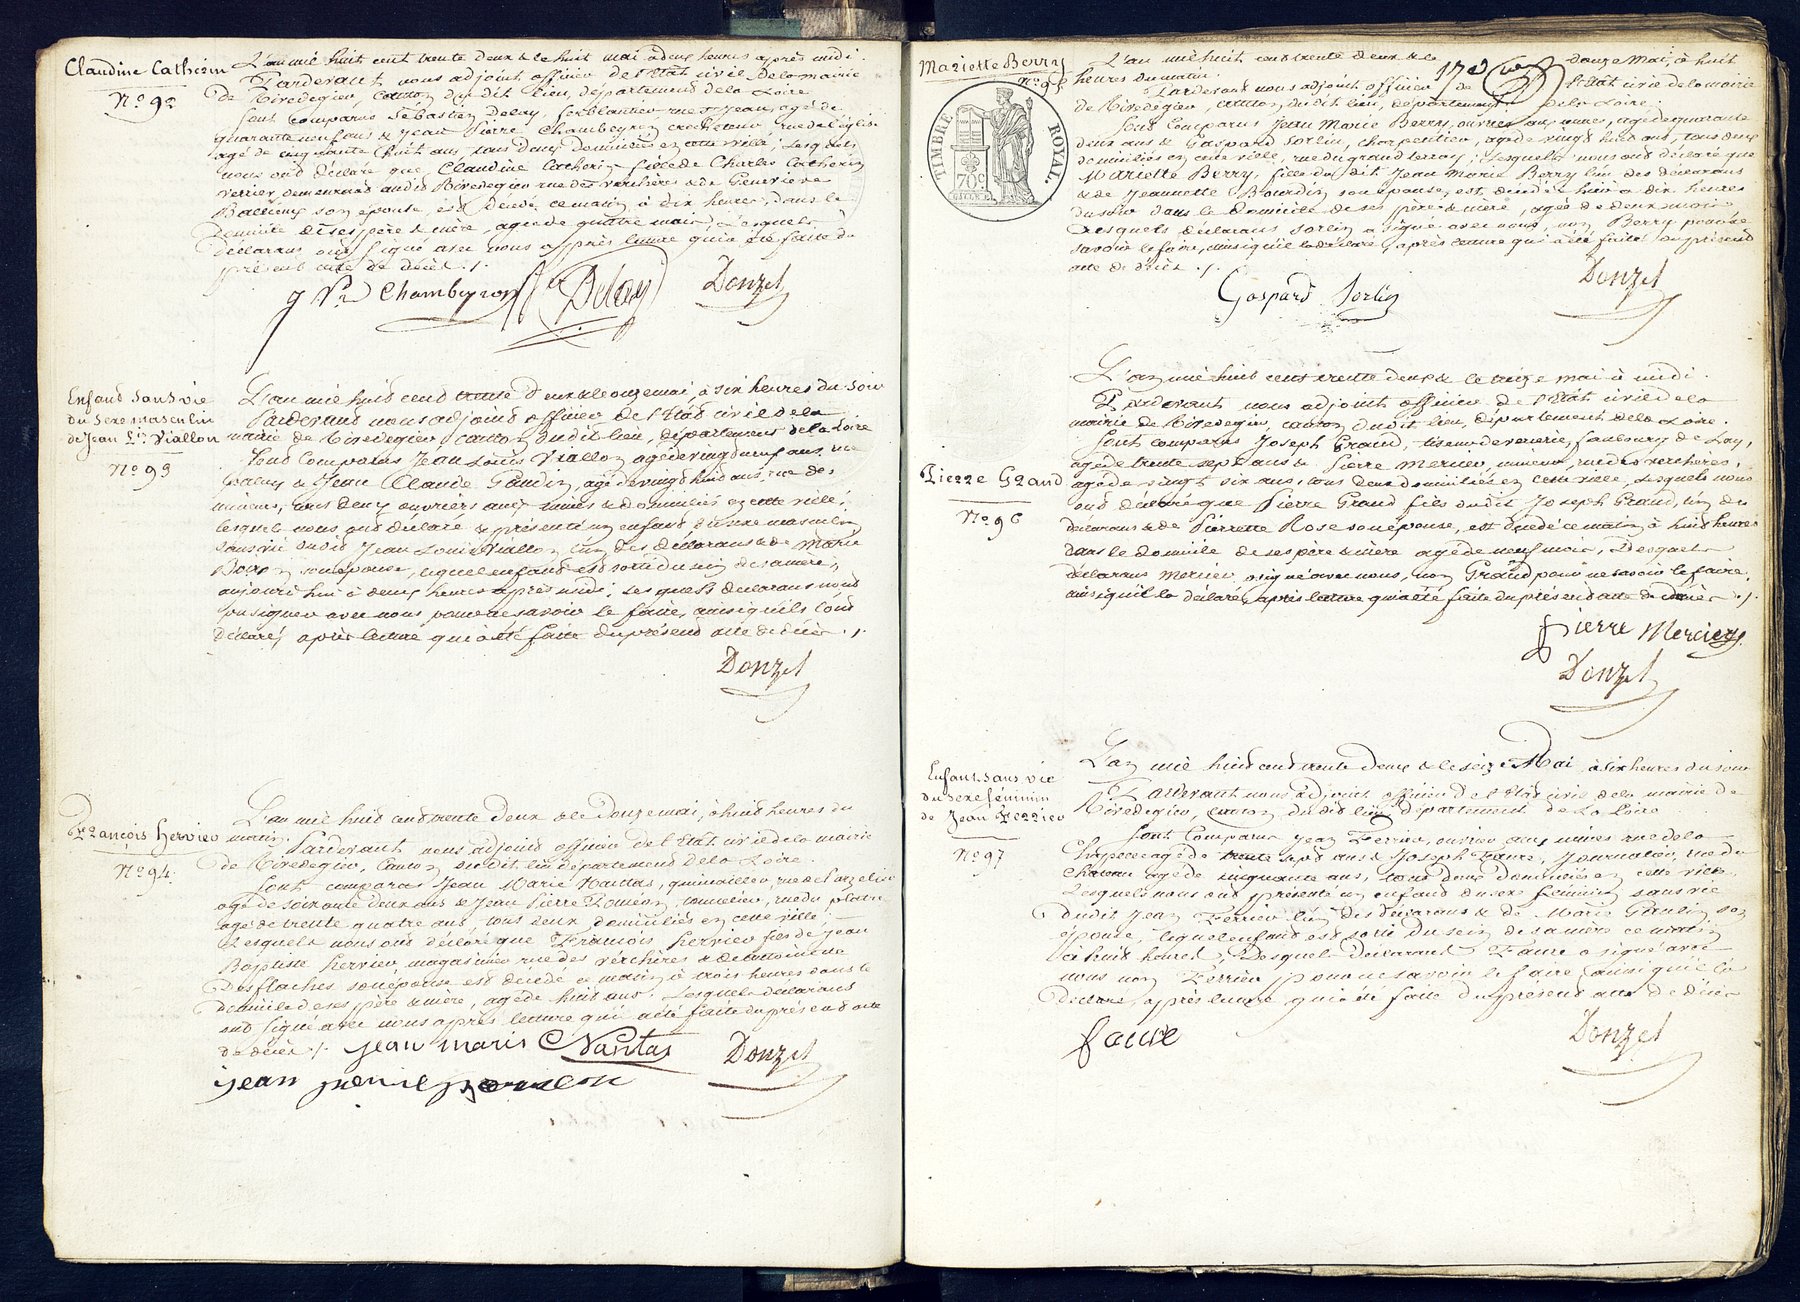 Claudine Catherin
N.o 92
L'an mil huit cent trente deux & le huit mai à deux heures après midi.
Pardevant nous adjoint officier de l'Etat civil de la mairie
de Rivedegier, canton du dit lieu, département de la Loire
sont comparus Sébastien Delay, ferblantier rue St Jean, agé de
quarante neuf ans & Jean Pierre Chambeyron crocheteur, rue de l'église
agé de cinquante huit ans tous deux domiciliés en cette ville, lesquels
nous ont déclaré que Claudine Catherin fille de Charles Catherin
verrier, demeurant audit Rivedegier rue des verchères & de Geneviève
son épouse, est décédé ce matin à dix heures, dans le
domicile de ses père & mère, agée de quatre mois, Lesquels
déclarans ont signé avec nous après lecture qui a été faite du
présent acte de décès ./.
J Pre Chambeyron Delay Donzel
Enfant sans vie
du sexe masculin
de Jean Lis Viallon
N.o 93
L'an mil huit cent trente deux & le onze mai, à six heures du soir
Pardevant nous adjoint officier de l'Etat civil de la
mairie de Rivedegier canton du dit lieu, département de la Loire
sont comparus Jean Louis Viallon agé de vingt neuf ans, rue
& Jean Claude Gaudin, agé de vingt huit ans, rue des
mineurs, tous deux ouvriers aux mines & domiciliés en cette ville;
lesquels nous ont déclaré & présenté un enfant du sexe masculin
sans vie dudit Jean Louis Viallon l'un des déclarans & de Marie
son épouse, lequel enfant est sorti du sein de sa mère,
aujourd'hui à deux heures après midi; Lesquels déclarans n'ont
pu signer avec nous pour ne savoir le faire, ainsi qu'ils l'ont
déclaré, après lecture qui a été faite du présent acte de décès ./.
Donzel
François Hervier
N.o 94
L'an mil huit cent trente deux & le douze mai, à huit heures du
matin. Pardevant nous adjoint officier de l'Etat civil de la mairie
de Rivedegier, canton du dit lieu département de la Loire.
Sont comparus Jean Marie Nantas, quincailler, rue
agé de soixante deux ans & Jean Pierre, tonnelier, rue du
agé de trente quatre ans, tous deux domiciliés en cette ville.
Lesquels nous ont déclaré que François Hervier fils de Jean
Baptiste Hervier, magasinier rue des verchères & de Antoinette
Desflaches son épouse est décédé ce matin à trois heures dans le
domicile de ses père & mère, agé de huit ans. Lesquels déclarans
ont signé avec nous après lecture qui a été faite du présent acte
de décès ./. jean marie Nantas Donzel
jean
Mariette Berry
N.o 95
TIMBRE ROYAL.
70c
L'an mil huit cent trente deux & le douze Mai, à huit
heures du matin.
Pardevant nous adjoint officier de l'Etat civil de la mairie
de Rivedegier, canton du dit lieu, département de la Loire.
Sont comparus Jean Marie Berry, ouvrier aux mines, agé de quarante
deux ans & Gaspard Sorlin, charpentier, agé de vingt huit ans, tous deux
domiciliés en cette ville, rue du grand terray; lesquels nous ont déclaré que
Mariette Berry, fille du dit Jean Marie Berry l'un des déclarans
& de Jeannette Bourdin son épouse, est décédée hier à dix heures
du soir dans le domicile de ses père & mère, agée de deux mois
Lesquels déclarans Sorlin a signé avec nous, non Berry pour ne
savoir le faire, ainsi qu'il l'a déclaré, après lecture qui a été faite du présent
acte de décès ./.
Gaspard Sorlin Donzel
Pierre Grand
N.o 96
L'an mil huit cent trente deux & le treize mai à midi.
Pardevant nous adjoint officier de l'Etat civil de la
mairie de Rivedegier, canton du dit lieu, département de la Loire.
Sont comparus Joseph Grand, tiseur de verrerie, faubourg de Lay,
agé de trente sept ans & Pierre Mercier, mineur, rue des verchères,
agé de vingt six ans, tous deux domiciliés en cette ville, Lesquels nous
ont déclaré que Pierre Grand fils dudit Joseph Grand, l'un des
déclarans & de Pierrette Rose son épouse, est décédé ce matin à huit heures
dans le domicile de ses père & mère agé de neuf mois, Desquels
déclarans Mercier a signé avec nous, non Grand pour ne savoir le faire,
ainsi qu'il l'a déclaré, après lecture qui a été faite du présent acte de décès ./.
pierre Mercier
Donzel
Enfant sans vie
du sexe féminin
de Jean Ferrier
N.o 97
L'an mil huit cent trente deux & le seize Mai à six heures du soir
Pardevant nous adjoint officier de l'Etat civil de la mairie de
Rivedegier, canton du dit lieu département de la Loire
Sont comparus Jean Ferrier, ouvrier aux mines rue de la
agé de trente sept ans & Joseph Faure, journalier, rue du
Chateau agé de cinquante ans, tous deux domiciliés en cette ville
Lesquels nous ont présenté un enfant du sexe féminin sans vie
dudit Jean Ferrier l'un des déclarans & de Marie Gaulin son
épouse, lequel enfant est sorti du sein de sa mère ce matin
à huit heures, Desquels déclarans Faure a signé avec
nous non Ferrier pour ne savoir le faire, ainsi qu'il l'a
déclaré, après lecture qui a été faite du présent acte de décès
faure Donzel